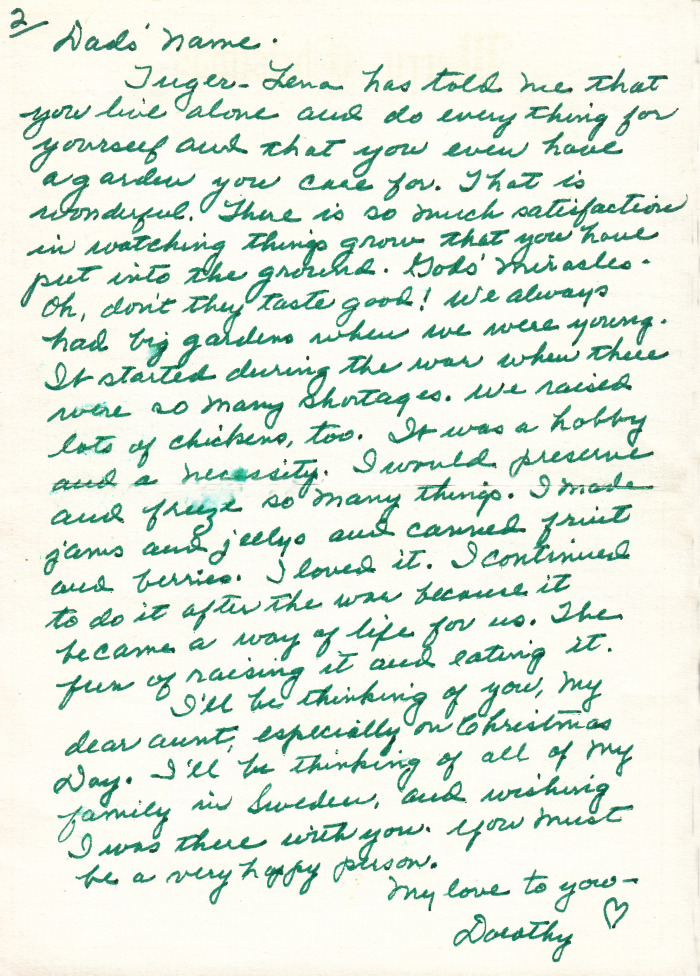 2
Dads' name.
Inger-Lena has told me that
you live alone and do everything for
yourself and that you even have
a garden you care for. That is
wonderful. There is so much satisfaction
in watching things grow that you have
put into the ground. Gods' miracles.
Oh, don't they taste good! We always
had big gardens when we were young.
It started during the war when there
were so many shortages. We raised
lots of chickens, too. It was a hobby
and a necessity. I would preserve
and freeze so many things. I made
jams and jellys and canned fruit
and berries. I loved it. I continued
to do it after the war because it
became a way of life for us. The
fun of raising it and eating it.
I'll be thinking of you, my
dear aunt, especially on Christmas
Day. I'll be thinking of all of my
family in Sweden, and wishing
I was there with you. You must
be a very happy person.
My love to you-
Dorothy ♡